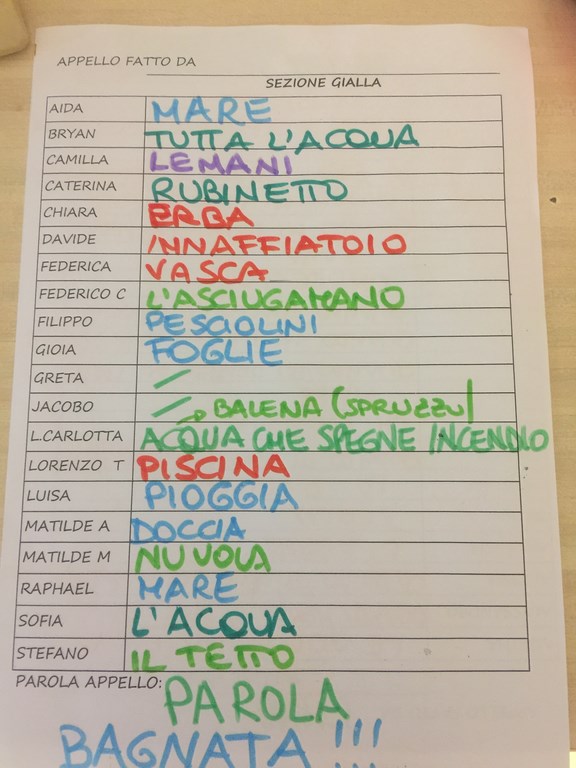 APPELLO FATTO DA
SEZIONE GIALLA
AIDA MARE
BRYAN TUTTA L'ACQUA
CAMILLA LE MANI
CATERINA RUBINETTO
CHIARA ERBA
DAVIDE INNAFFIATOIO
FEDERICA VASCA
FEDERICO C L'ASCIUGAMANO
FILIPPO PESCIOLINI
GIOIA FOGLIE
GRETA
JACOBO BALENA (SPRUZZI)
L.CARLOTTA ACQUA CHE SPEGNE INCENDIO
LORENZO T PISCINA
LUISA PIOGGIA
MATILDE A DOCCIA
MATILDE M NUVOLA
RAPHAEL MARE
SOFIA L'ACQUA
STEFANO IL TETTO
PAROLA APPELLO: PAROLA
BAGNATA !!!